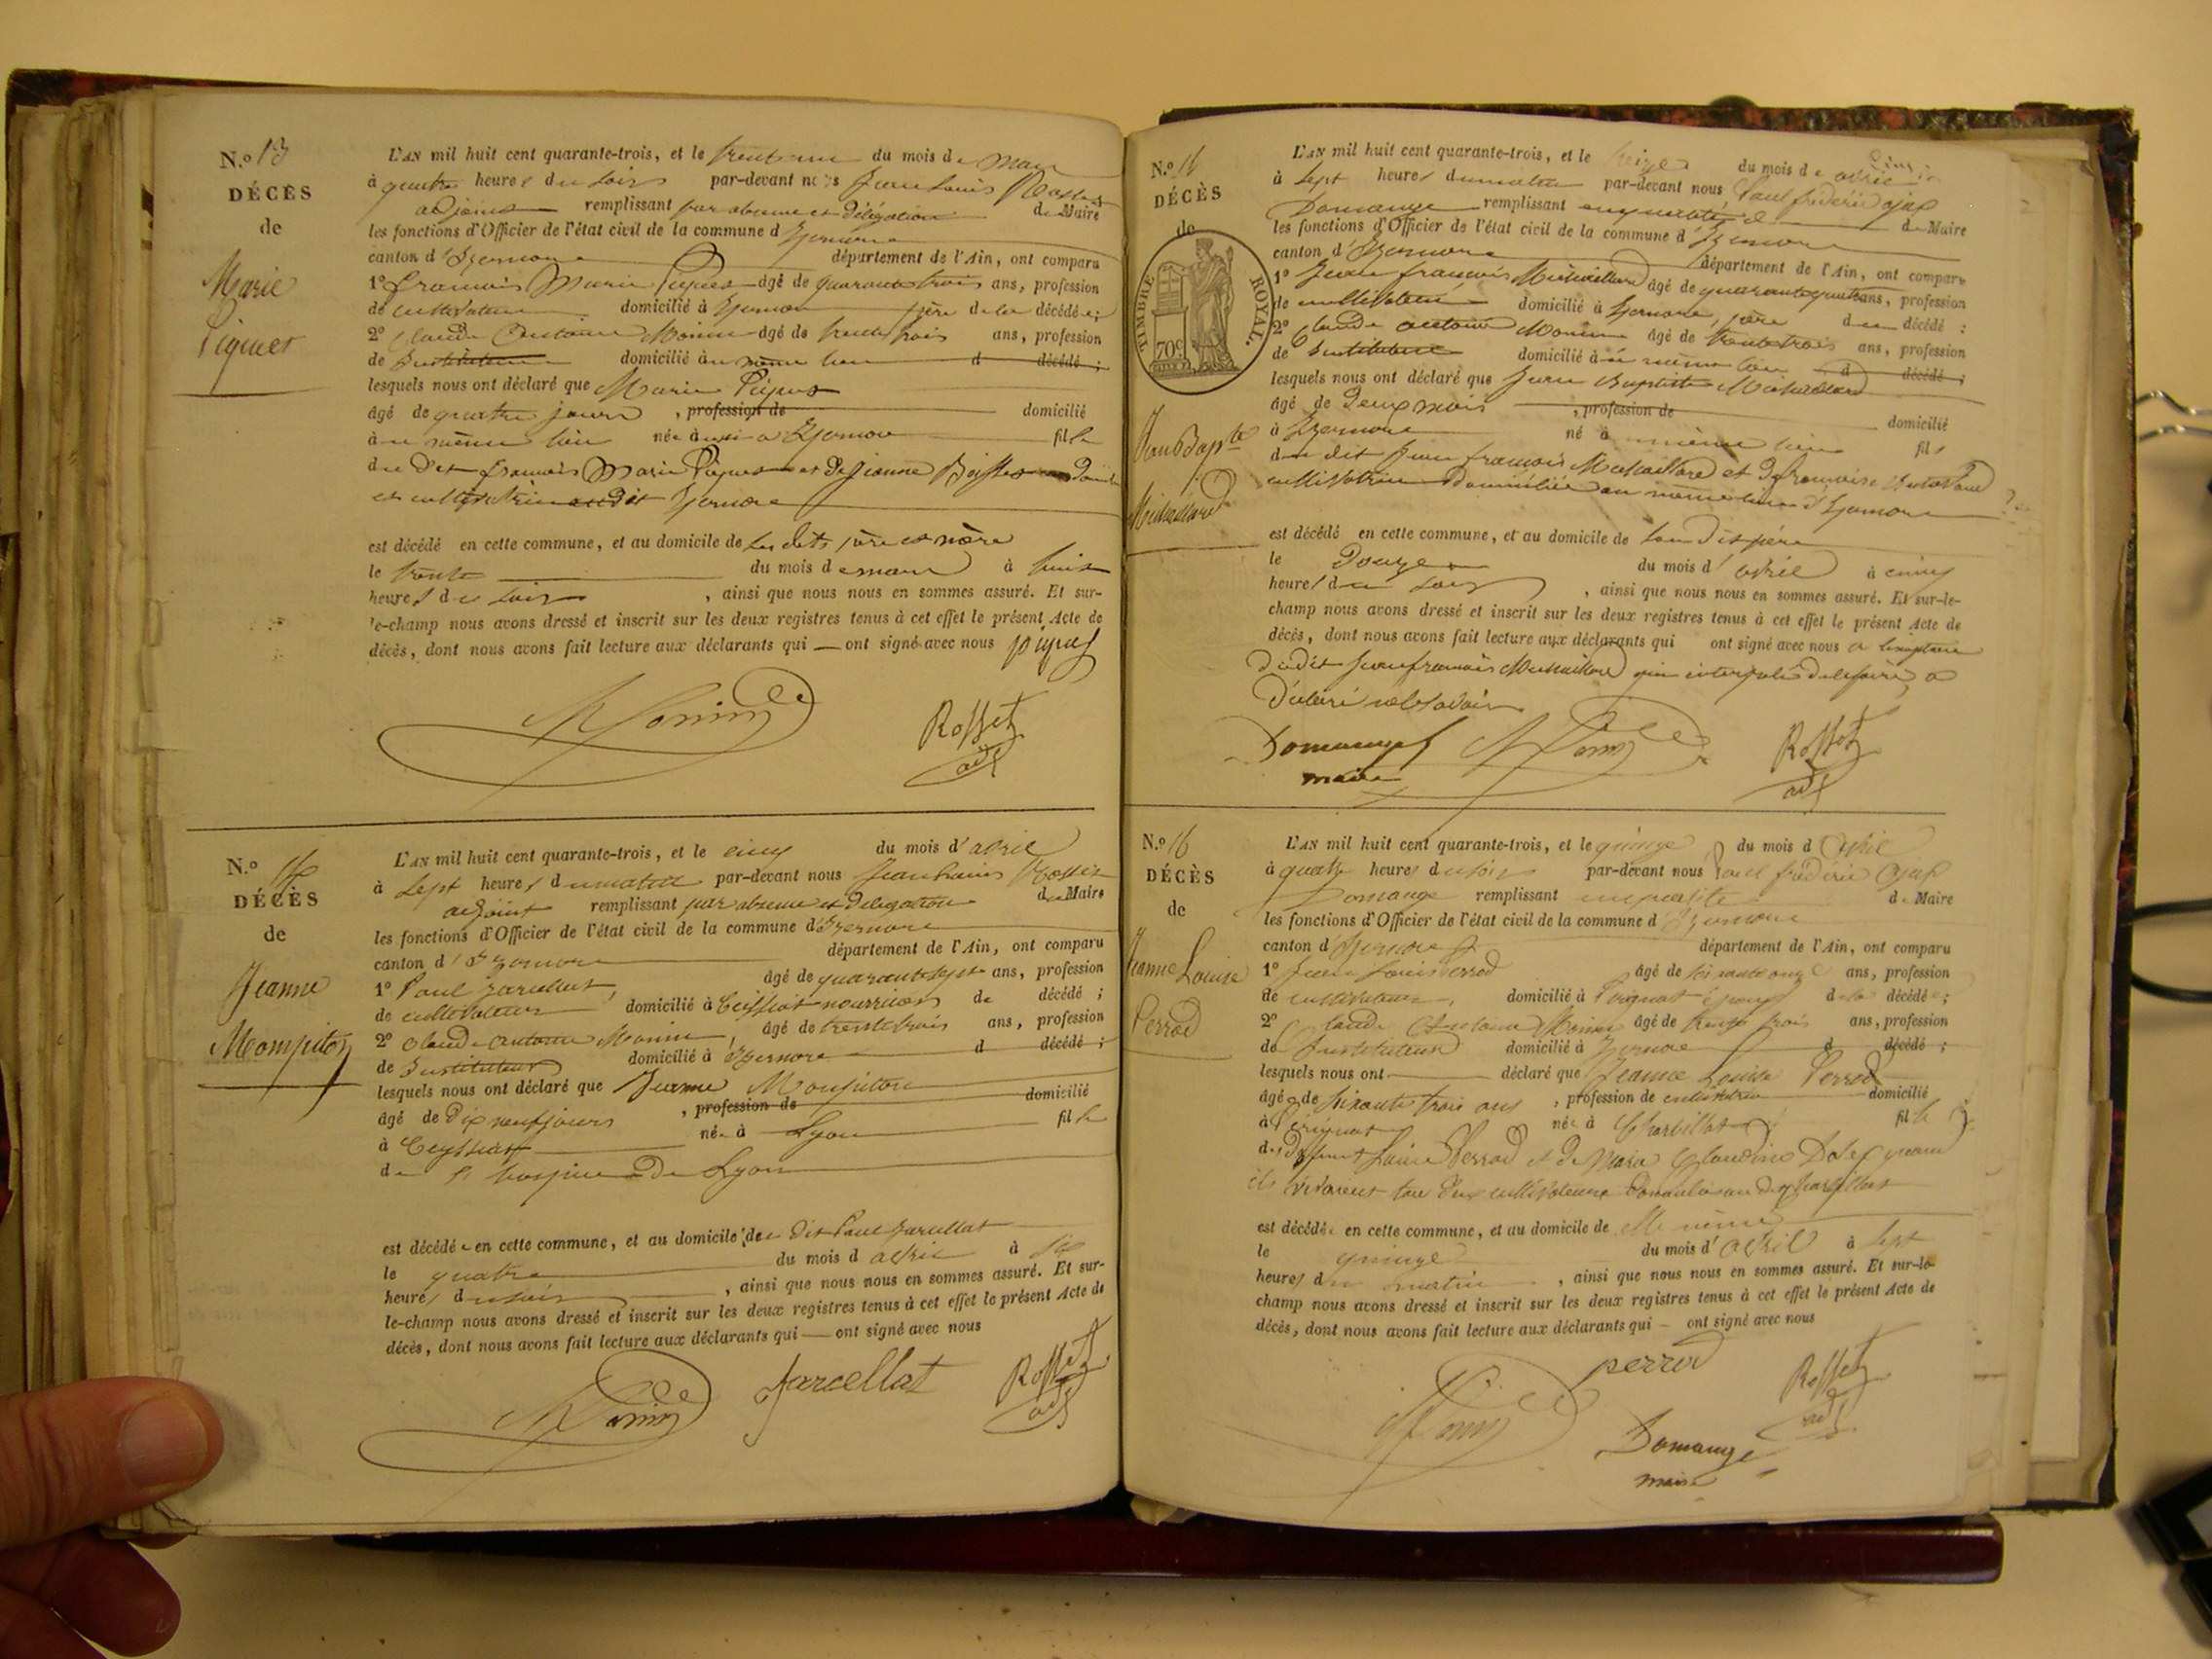 N.o 13
DÉCÈS
de
Marie
Piquet
L'AN mil huit cent quarante-trois, et le trente un du mois de mars
à quatre heures du soir par-devant nous Jean Louis Rosset
adjoint remplissant par absence et délégation de Maire
les fonctions d'Officier de l'état civil de la commune d'Izernore
canton d'Izernore département de l'Ain, ont comparu
1o françois Marie Piquet âgé de quarante trois ans, profession
de cultivateur domicilié à Izernore père de la décédée;
2o Claude Antoine Monin âgé de trente trois ans, profession
de Instituteur domicilié au même lieu d décédé;
lesquels nous ont déclaré que Marie Piquet
âgé de quatre jours, profession de domicilié
à ce même lieu née à Izernore fille
du dit françois Marie Piquet et de Jeanne
Izernore
est décédé en cette commune, et au domicile de ses dits père et mère
le trente du mois de mars à huit
heures du soir, ainsi que nous nous en sommes assuré. Et sur-
le-champ nous avons dressé et inscrit sur les deux registres tenus à cet effet le présent Acte de
décès, dont nous avons fait lecture aux déclarants qui — ont signé avec nous piquet
Monin
Rosset
adj
N.o 14
DÉCÈS
de
Jeanne
Mompiton
L'AN mil huit cent quarante-trois, et le cinq du mois d'avril
à sept heures du matin par-devant nous Jean Louis Rosset
adjoint remplissant par absence et délégation de Maire
les fonctions d'Officier de l'état civil de la commune d'Izernore
canton d'Izernore département de l'Ain, ont comparu
1o Paul Jarcellat, âgé de quarante sept ans, profession
de cultivateur domicilié à Ceissiat nourricier de décédé;
2o Claude Antoine Monin, âgé de trente trois ans, profession
de Instituteur domicilié à Izernore d décédé;
lesquels nous ont déclaré que Jeanne Mompiton
âgé de dix neuf jours, profession de domicilié
à Ceyssiat née à Lyon fille
de l'hospice de Lyon
est décédée en cette commune, et au domicile du dit Paul Jarcellat
le quatre du mois d avril à six
heures du soir, ainsi que nous nous en sommes assuré. Et sur-
le-champ nous avons dressé et inscrit sur les deux registres tenus à cet effet le présent Acte de
décès, dont nous avons fait lecture aux déclarants qui — ont signé avec nous
Monin
Jarcellat
Rosset
adj
N.o
DÉCÈS
de
TIMBRE ROYAL.
70c
Jean Bapte
Michaillard
L'AN mil huit cent quarante-trois, et le treize du mois de avril
à sept heures du matin par-devant nous, Paul frédéric ajax
Domange remplissant en qualité de Maire
les fonctions d'Officier de l'état civil de la commune d'Izernore
canton d'Izernore département de l'Ain, ont comparu
1o Jean françois Michaillard âgé de quarante quatre ans, profession
de cultivateur domicilié à Izernore, père du décédé;
2o Claude antoine Monin âgé de trente trois ans, profession
de Instituteur domicilié à ce même lieu d décédé;
lesquels nous ont déclaré que Jean Baptiste Michaillard
âgé de deux mois, profession de domicilié
à Izernore né à même lieu fils
du dit Jean françois Michaillard et de françoise
cultivatrice domiciliée au même lieu d'Izernore
est décédé en cette commune, et au domicile de son dit père
le Douze du mois d'avril à cinq
heures du soir, ainsi que nous nous en sommes assuré. Et sur-le-
champ nous avons dressé et inscrit sur les deux registres tenus à cet effet le présent Acte de
décès, dont nous avons fait lecture aux déclarants qui ont signé avec nous à l'exception
dudit Jean françois Michaillard qui interpellé de le faire, a
déclaré ne le savoir
Domange
maire
Monin
Rosset
adj
N.o 16
DÉCÈS
de
Jeanne Louise
Perrod
L'AN mil huit cent quarante-trois, et le quinze du mois d avril
à quatre heures du soir par-devant nous Paul frédéric ajax
Domange remplissant en qualité de Maire
les fonctions d'Officier de l'état civil de la commune d'Izernore
canton d'Izernore département de l'Ain, ont comparu
1o Jean Louis Perrod âgé de soixante onze ans, profession
de cultivateur, domicilié à Perignat époux de la décédée;
2o Claude Antoine Monin âgé de trente trois ans, profession
de Instituteur domicilié à Izernore d décédé;
lesquels nous ont déclaré que Jeanne Louise Perrod
âgée de soixante trois ans, profession de cultivatrice domicilié
à Perignat née à Charbillat fille
de défunt Louis Perrod et de Marie Claudine quand
ils vivaient tous deux cultivateurs
est décédée en cette commune, et au domicile de
le quinze du mois d'avril à sept
heures du matin, ainsi que nous nous en sommes assuré. Et sur-le-
champ nous avons dressé et inscrit sur les deux registres tenus à cet effet le présent Acte de
décès, dont nous avons fait lecture aux déclarants qui — ont signé avec nous
perrod
Monin
Rosset
adj
Domange
maire